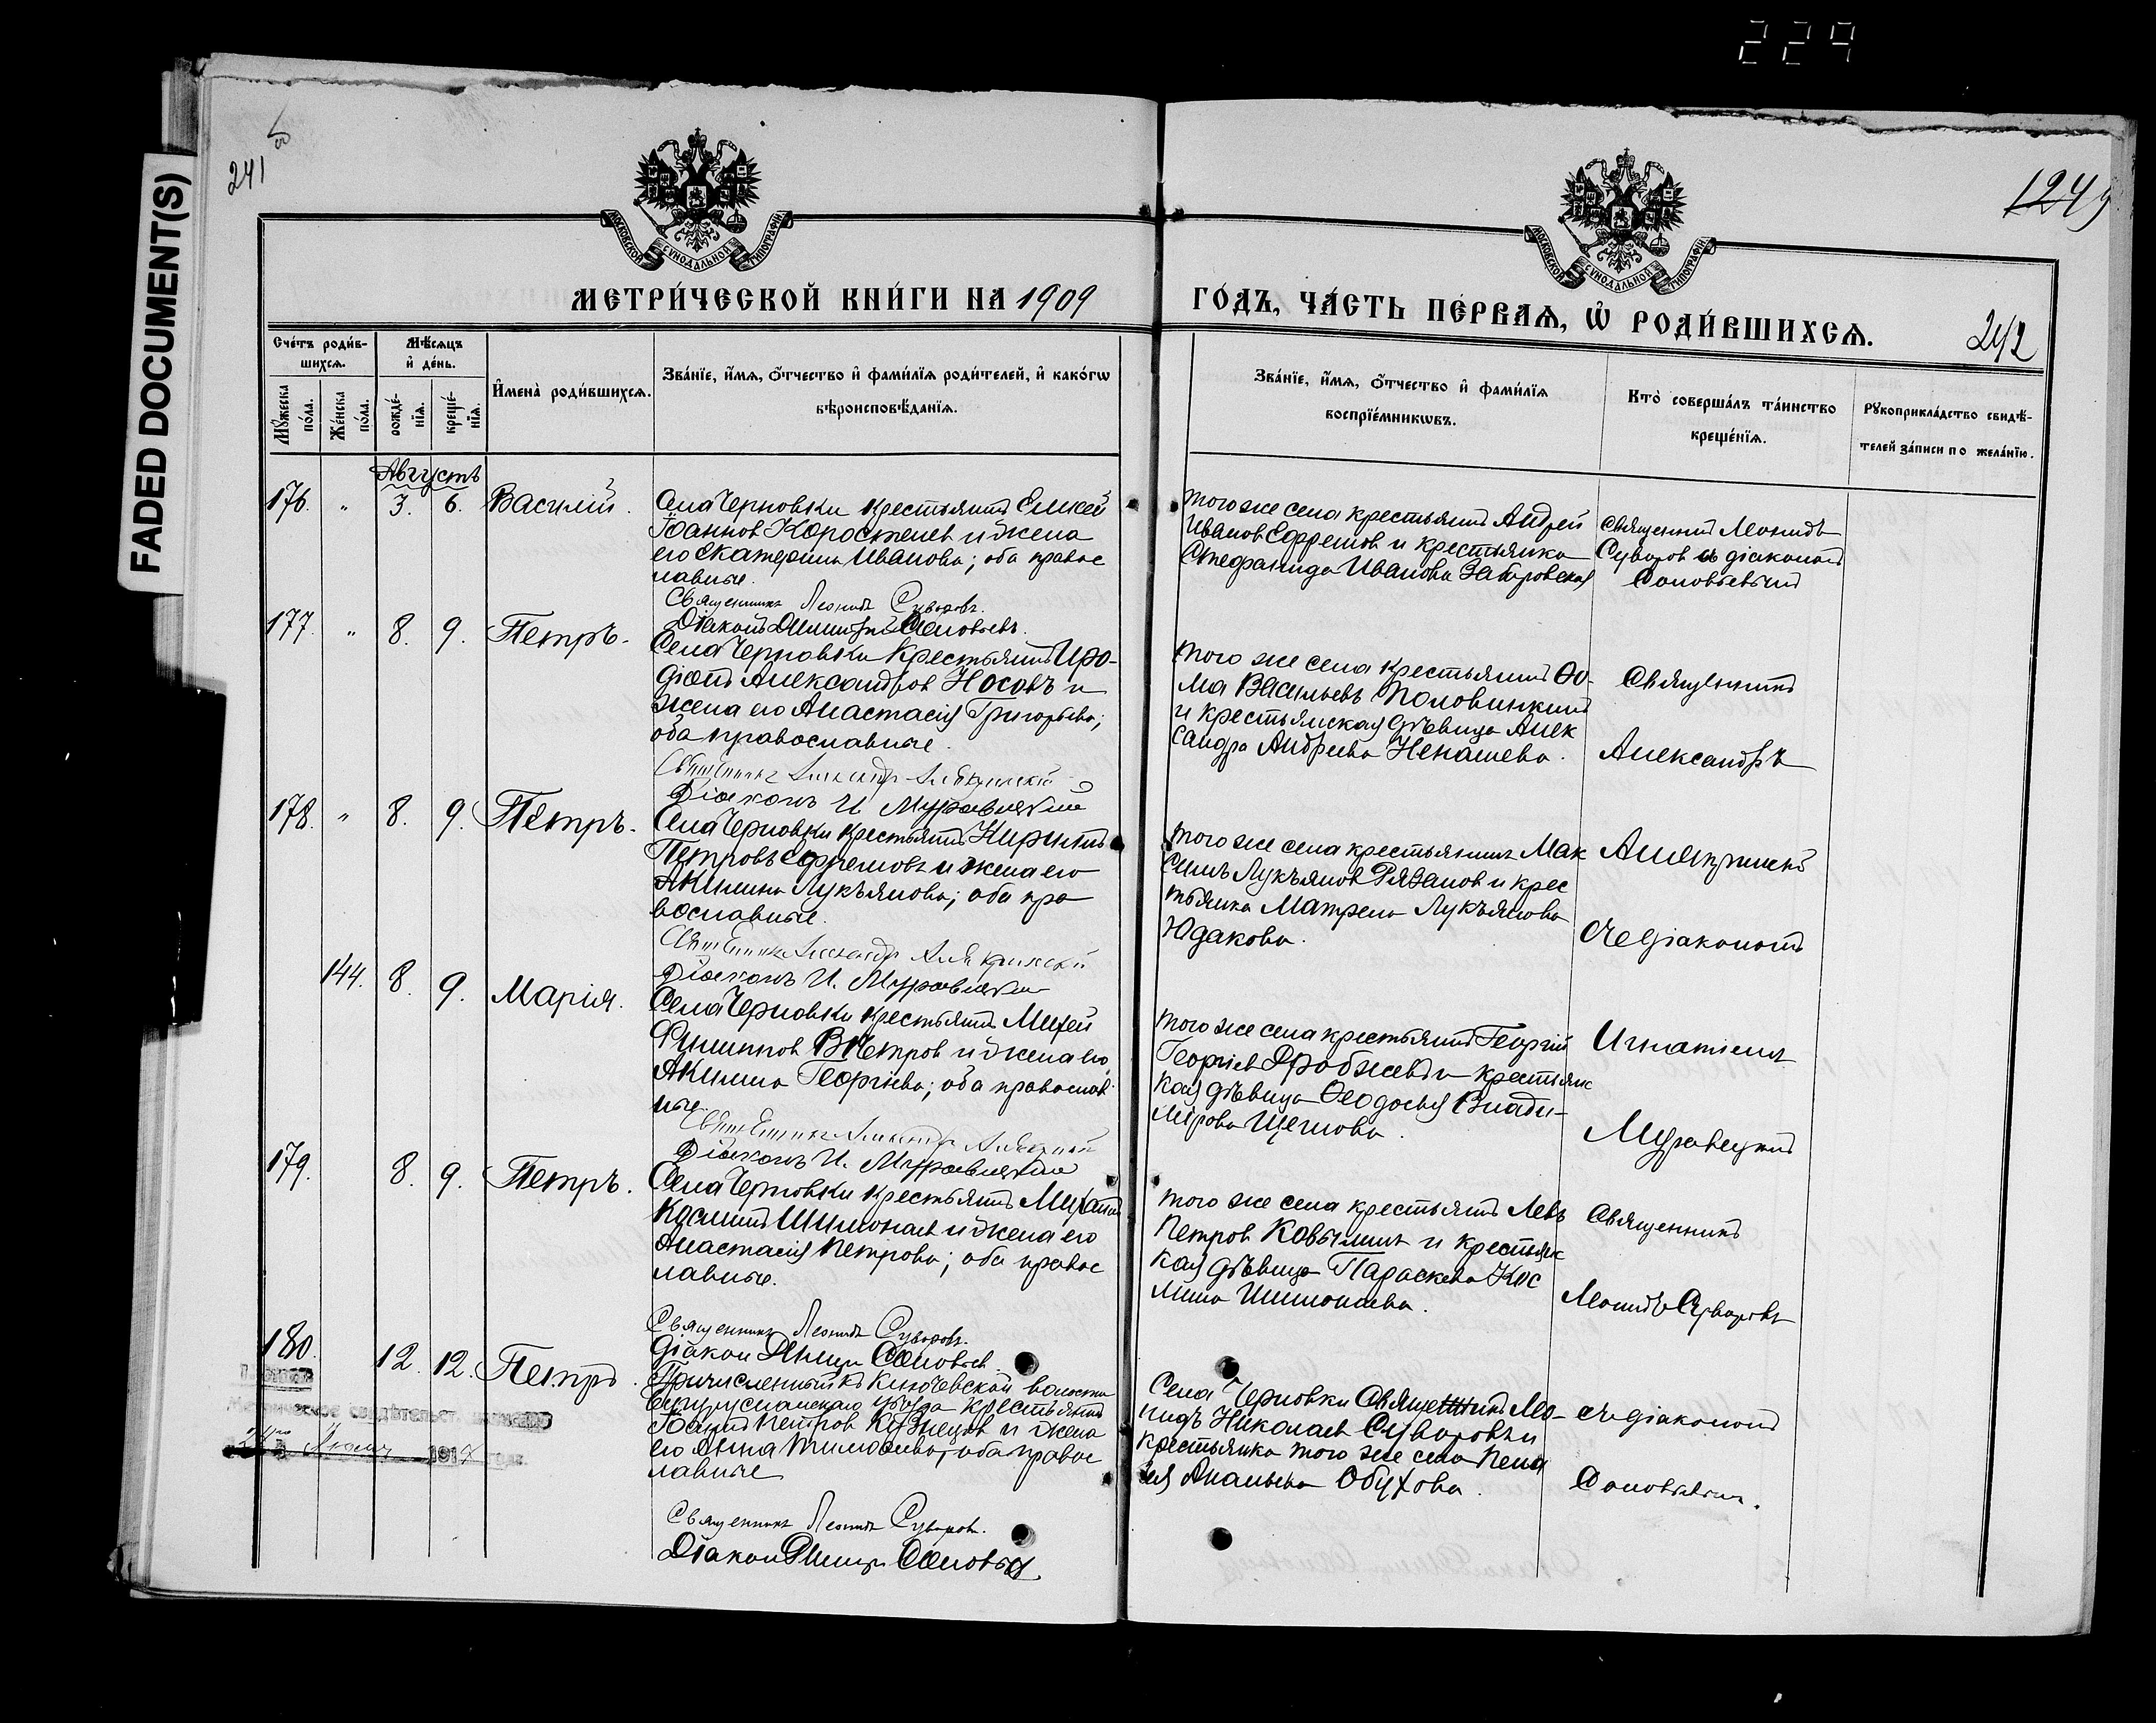 229
FADED DOCUMENT(S)
241
1249
МОСКОВСКОЙ СѴНОДАЛЬНОЙ ТИПОГРАФІИ
МОСКОВСКОЙ СѴНОДАЛЬНОЙ ТИПОГРАФІИ
МЕТРИ́ЧЕСКОЙ КНИ́ГИ НА 1909
ГО́ДЪ, ЧА́СТЬ ПЕ́РВАѦ, Ѡ҆ РОДИ́ВШИХСѦ.
242
Сче́тъ роди́в-
шихсѧ.
Мѣ́сѧцъ
и҆ де́нь.
Мꙋ́жеска
по́ла.
Же́нска
по́ла.
рожде́-
нїѧ.
креще́-
нїѧ.
И҆мена̀ роди́вшихсѧ.
Зва́нїе, и҆́мѧ, ѻ҆́тчество и҆ фами́лїѧ роди́телей, и҆ како́гѡ
вѣроисповѣ́данїѧ.
Зва́нїе, и҆́мѧ, ѻ҆́тчество и҆ фами́лїѧ
воспрїе́мникѡвъ.
Кто̀ соверша́лъ та́инство
креще́нїѧ.
Рꙋкоприкла́дство свидѣ́-
телей за́писи по жела́нїю.
Августъ
176. " 3. 6. Василій.
Села Черновки крестьянинъ Елисей
Іоаннов Коростелев и жена
его Екатерина Иванова; оба правос
лавные.
Священникъ Леонидъ Суворовъ.
Діаконъ Димитрій Соловьевъ.
того же села крестьянинъ Андрей
Иванов Ефремов и крестьянка
Стефанида Иванова
Священникъ Леонидъ
Суворов съ діакономъ
Соловьевымъ
177. " 8. 9. Петръ.
Села Черновки крестьянинъ Иро-
діонъ Александров Носовъ и
жена его Анастасія Григорьева;
оба православные.
Священникъ Александръ
Діаконъ И. Муравицкій
того же села крестьянинъ Ѳо-
ма Васильевъ Половинкинъ
и крестьянская дѣвица Алек
сандра Андреева Ненашева.
Священникъ
Александръ
178. " 8. 9. Петръ.
Села Черновки крестьянинъ Кириллъ
Петровъ Ефремовъ и жена его
Акилина Лукъянова; оба пра
вославные.
Священникъ Александръ
Діаконъ И. Муравицкій
того же села крестьянинъ Мак
симъ Лукъянов Рязанов и крес
тьянка Матрена Лукъянова
Юдакова.
съ діакономъ
144. 8. 9. Марія.
Села Черновки крестьянинъ Михей
Филиппов Вѣтров и жена его
Акилина Георгіева; оба православ
ные.
Священникъ Александръ
Діаконъ И. Муравицкій
того же села крестьянинъ Георгій
Георгіев и крестьянс
кая дѣвица Ѳеодосія Влади-
мірова Щеглова.
Игнатіемъ
Муравицкимъ
179. 8. 9. Петръ.
Села Черновки крестьянинъ Михаилъ
Космин Шишонков и жена его
Анастасія Петрова; оба правос
лавные.
Священникъ Леонидъ Суворовъ.
Діакон Димитр Соловьев.
того же села крестьянинъ Левъ
Петров Ковылин и крестьянс
кая дѣвица Параскева Кос
мина
Священникъ
Леонидъ Суворовъ
180. 12. 12. Петръ.
Причисленный къ Ключевской волости
Бугурусланскаго уѣзда крестьянинъ
Іоаннъ Петров Кузнецов и жена
его Анна Тимоѳеева, оба правос
лавные
Священникъ Леонидъ Суворовъ.
Діакон Димитр Соловьев
Села Черновки Священникъ Лео-
нидъ Николаев Суворовъ и
крестьянка того же села Пела
гія Обухова.
съ діакономъ
Соловьевымъ.
1917 года.